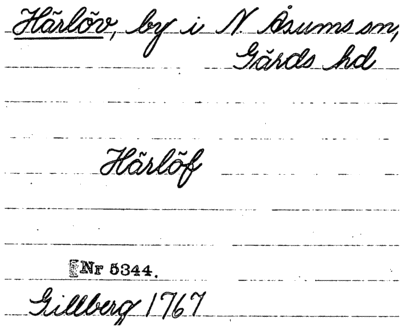 Härlöv, by i N. Åsums sn,
Gärds hd
Härlöf
Nr 5344.
Gillberg 1767